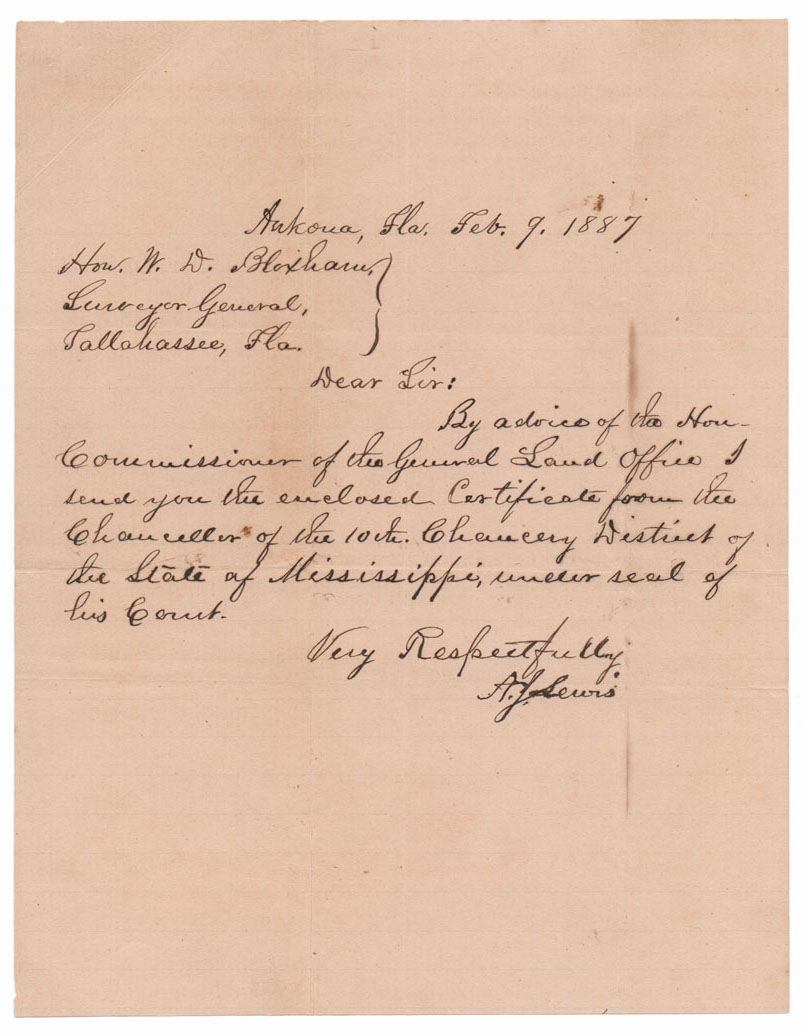 Ankona, Fla. Feb. 9. 1887
Hon. W. D. Bloxham,
Surveyor General,
Tallahassee, Fla.
Dear Sir:
By advice of the Hon-
Commissioner of the General Land Office I
send you the enclosed Certificate from the
Chancellor of the 10th. Chancery District of
the State of Mississippi, under seal of
his Court.
Very Respectfully
A. J. Lewis